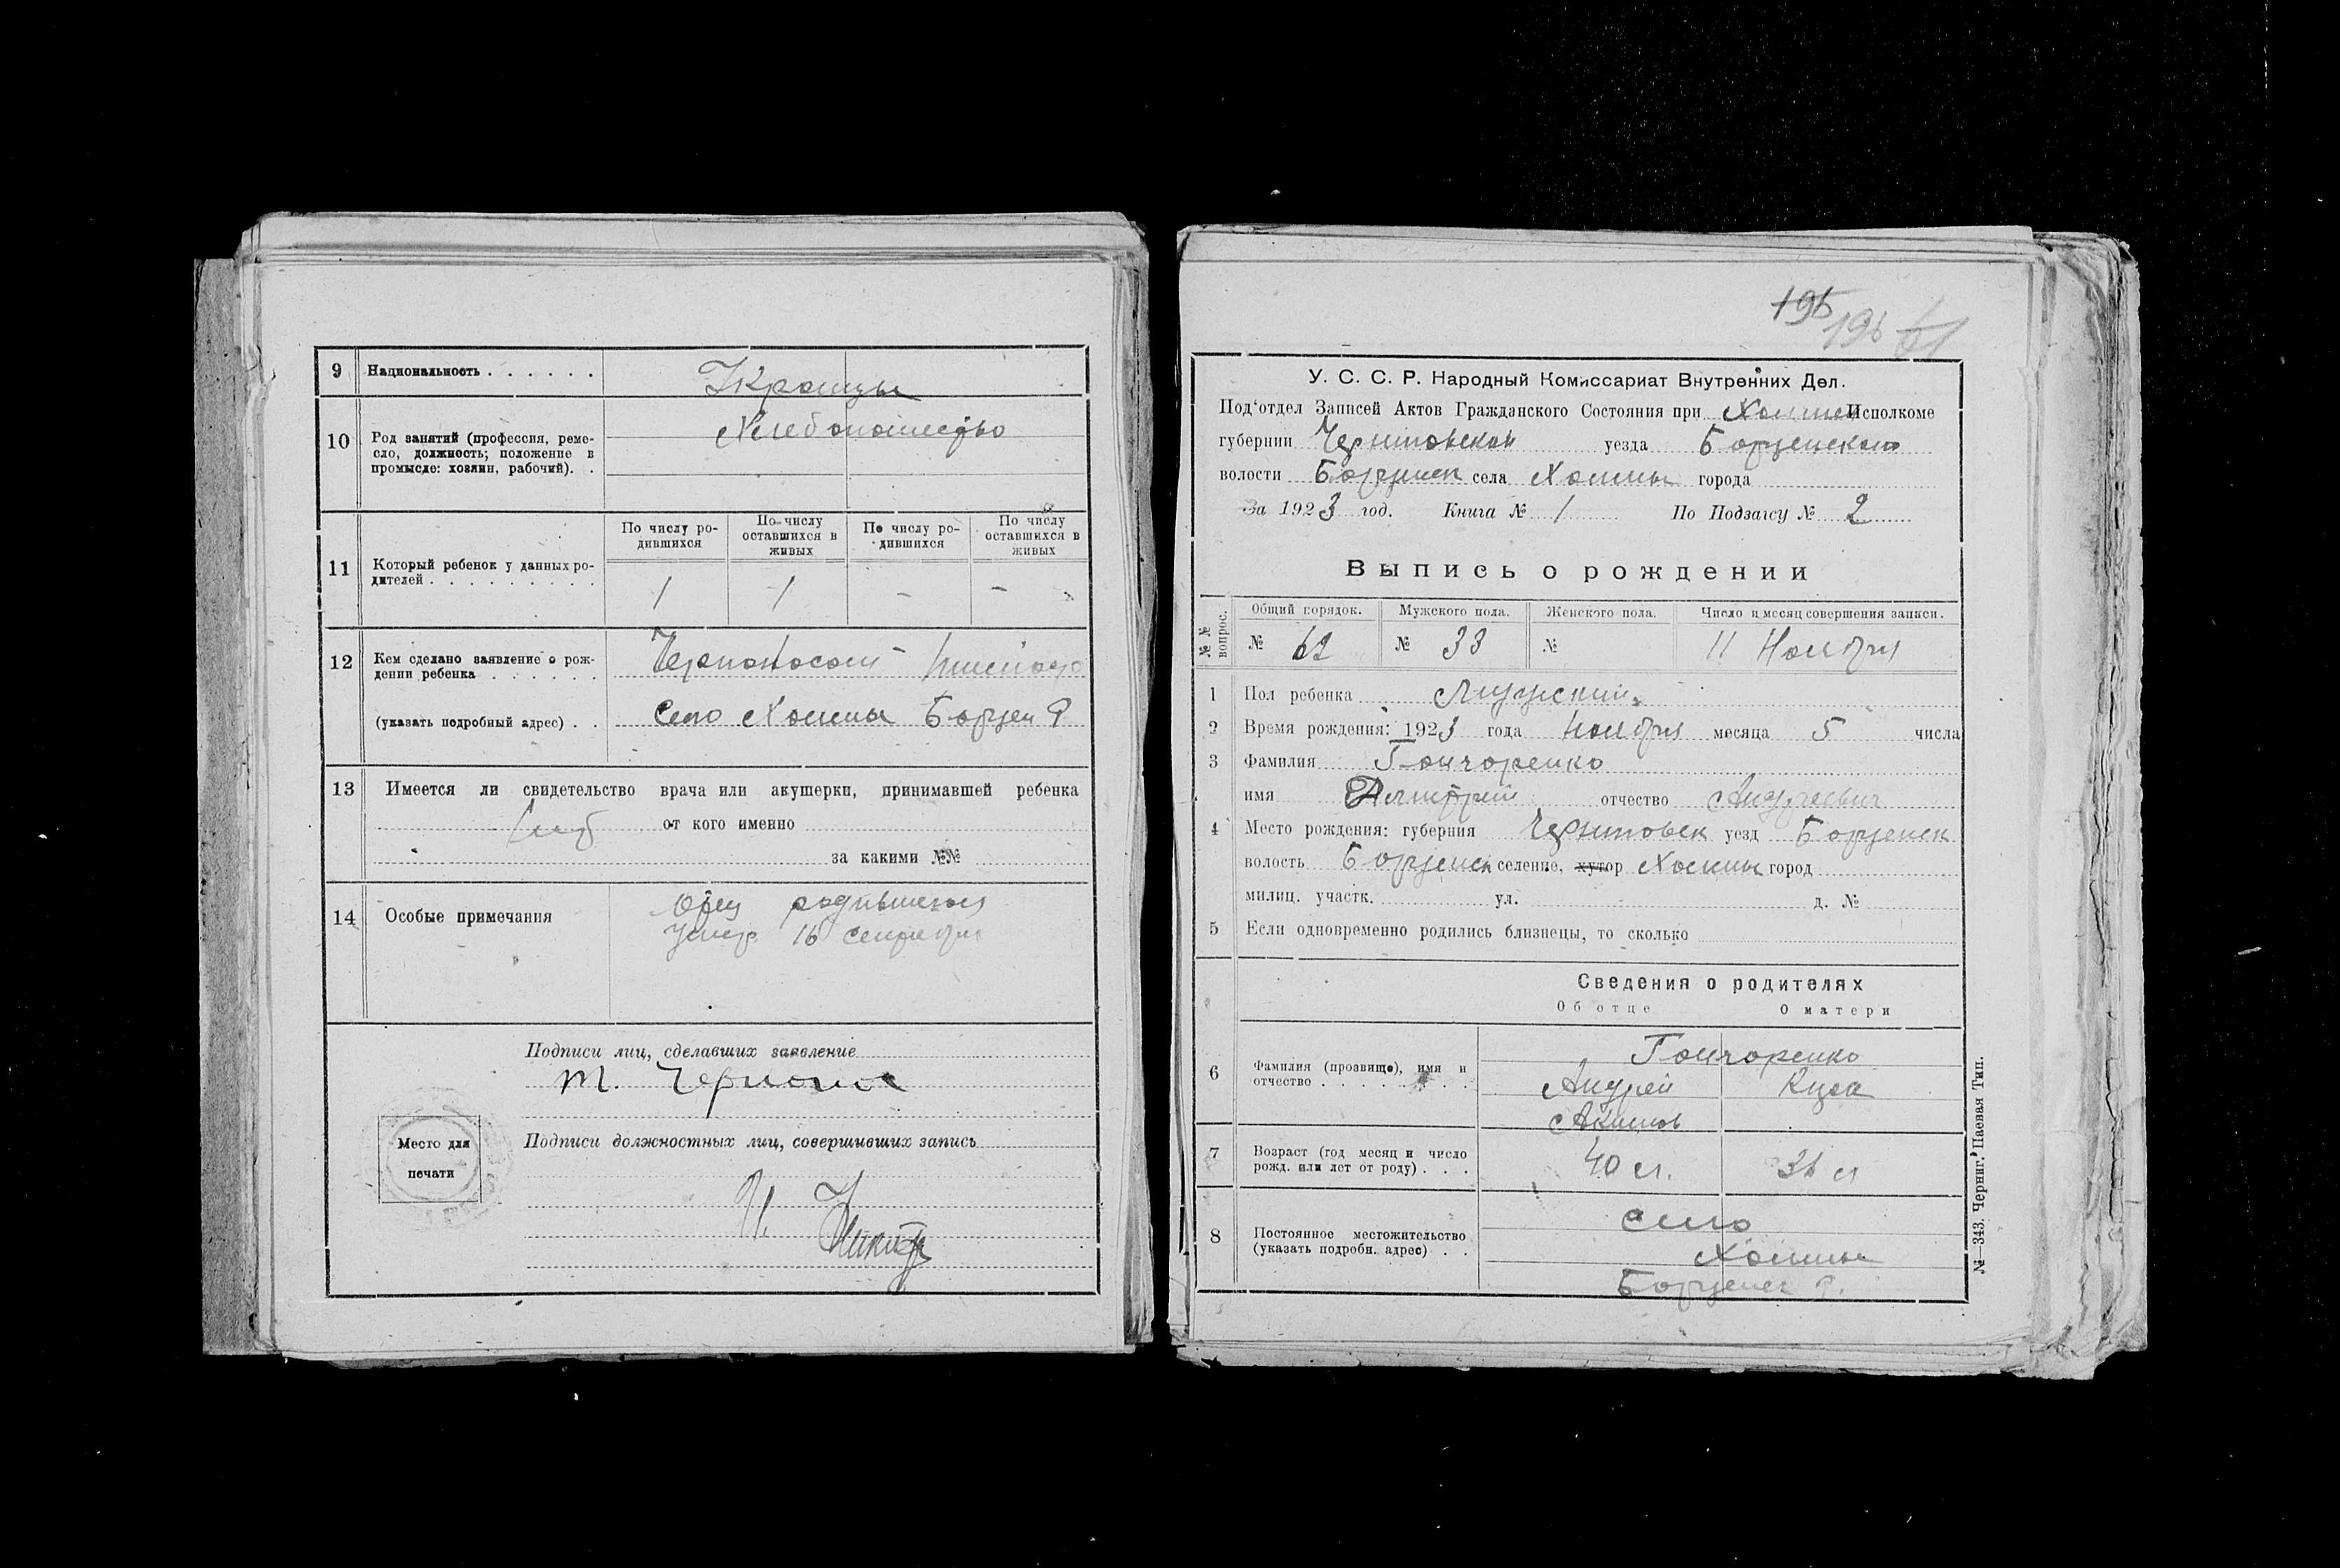 9 Национальность . . . . . . Украинцы
10 Род занятий (профессия, реме-
сло, должность; положение в
промысле: хозяин, рабочий). . Хлебопашество
11 Который ребенок у данных ро-
дителей . . . . . . . . .
По числу ро-
дившихся
По числу
оставшихся в
живых
По числу ро-
дившихся
По числу
оставшихся в
живых
1 1 - -
12 Кем сделано заявление о рож-
дении ребенка . . . . . .
(указать подробный адрес) . . Село Хомины Борзен Р
13 Имеется ли свидетельство врача или акушерки, принимавшей ребенка
от кого именно
за какими №№
14 Особые примечания
Отец родившегося
умер 16 сентября
Подписи лиц, сделавших заявление
Подписи должностных лиц, совершивших запись
Место для
печати
195 196 61
У. С. С. Р. Народный Комиссариат Внутренних Дел.
Под'отдел Записей Актов Гражданского Состояния при Исполкоме
губернии Черниговской уезда Борзенского
волости Борзенск села Хомины города
За 1923 год. Книга № 1 По Подзагсу № 2
Выпись о рождении
№№ вопрос.
Общий порядок. Мужского пола. Женского пола. Число и месяц совершения записи.
№ 62 № 33 № 11 Ноября
1 Пол ребенка Мужский
2 Время рождения: 1923 года ноября месяца 5 числа
3 Фамилия Гончаренко
имя Дмитрий отчество Андреевич
4 Место рождения: губерния Черниговск уезд Борзенск
волость Борзенск селение, хутор Хомины город
милиц. участк. ул. д. №
5 Если одновременно родились близнецы, то сколько
Сведения о родителях
Об отце О матери
6 Фамилия (прозвище), имя и
отчество . . . . . . . .
Гончаренко
Андрей
Акимов
7 Возраст (год месяц и число
рожд. или лет от роду) . . . 40 л. 36 л
8 Постоянное местожительство
(указать подробн. адрес) . .
Село
Хомины
Борзенск Р.
№—343. Черниг. Паевая Тип.